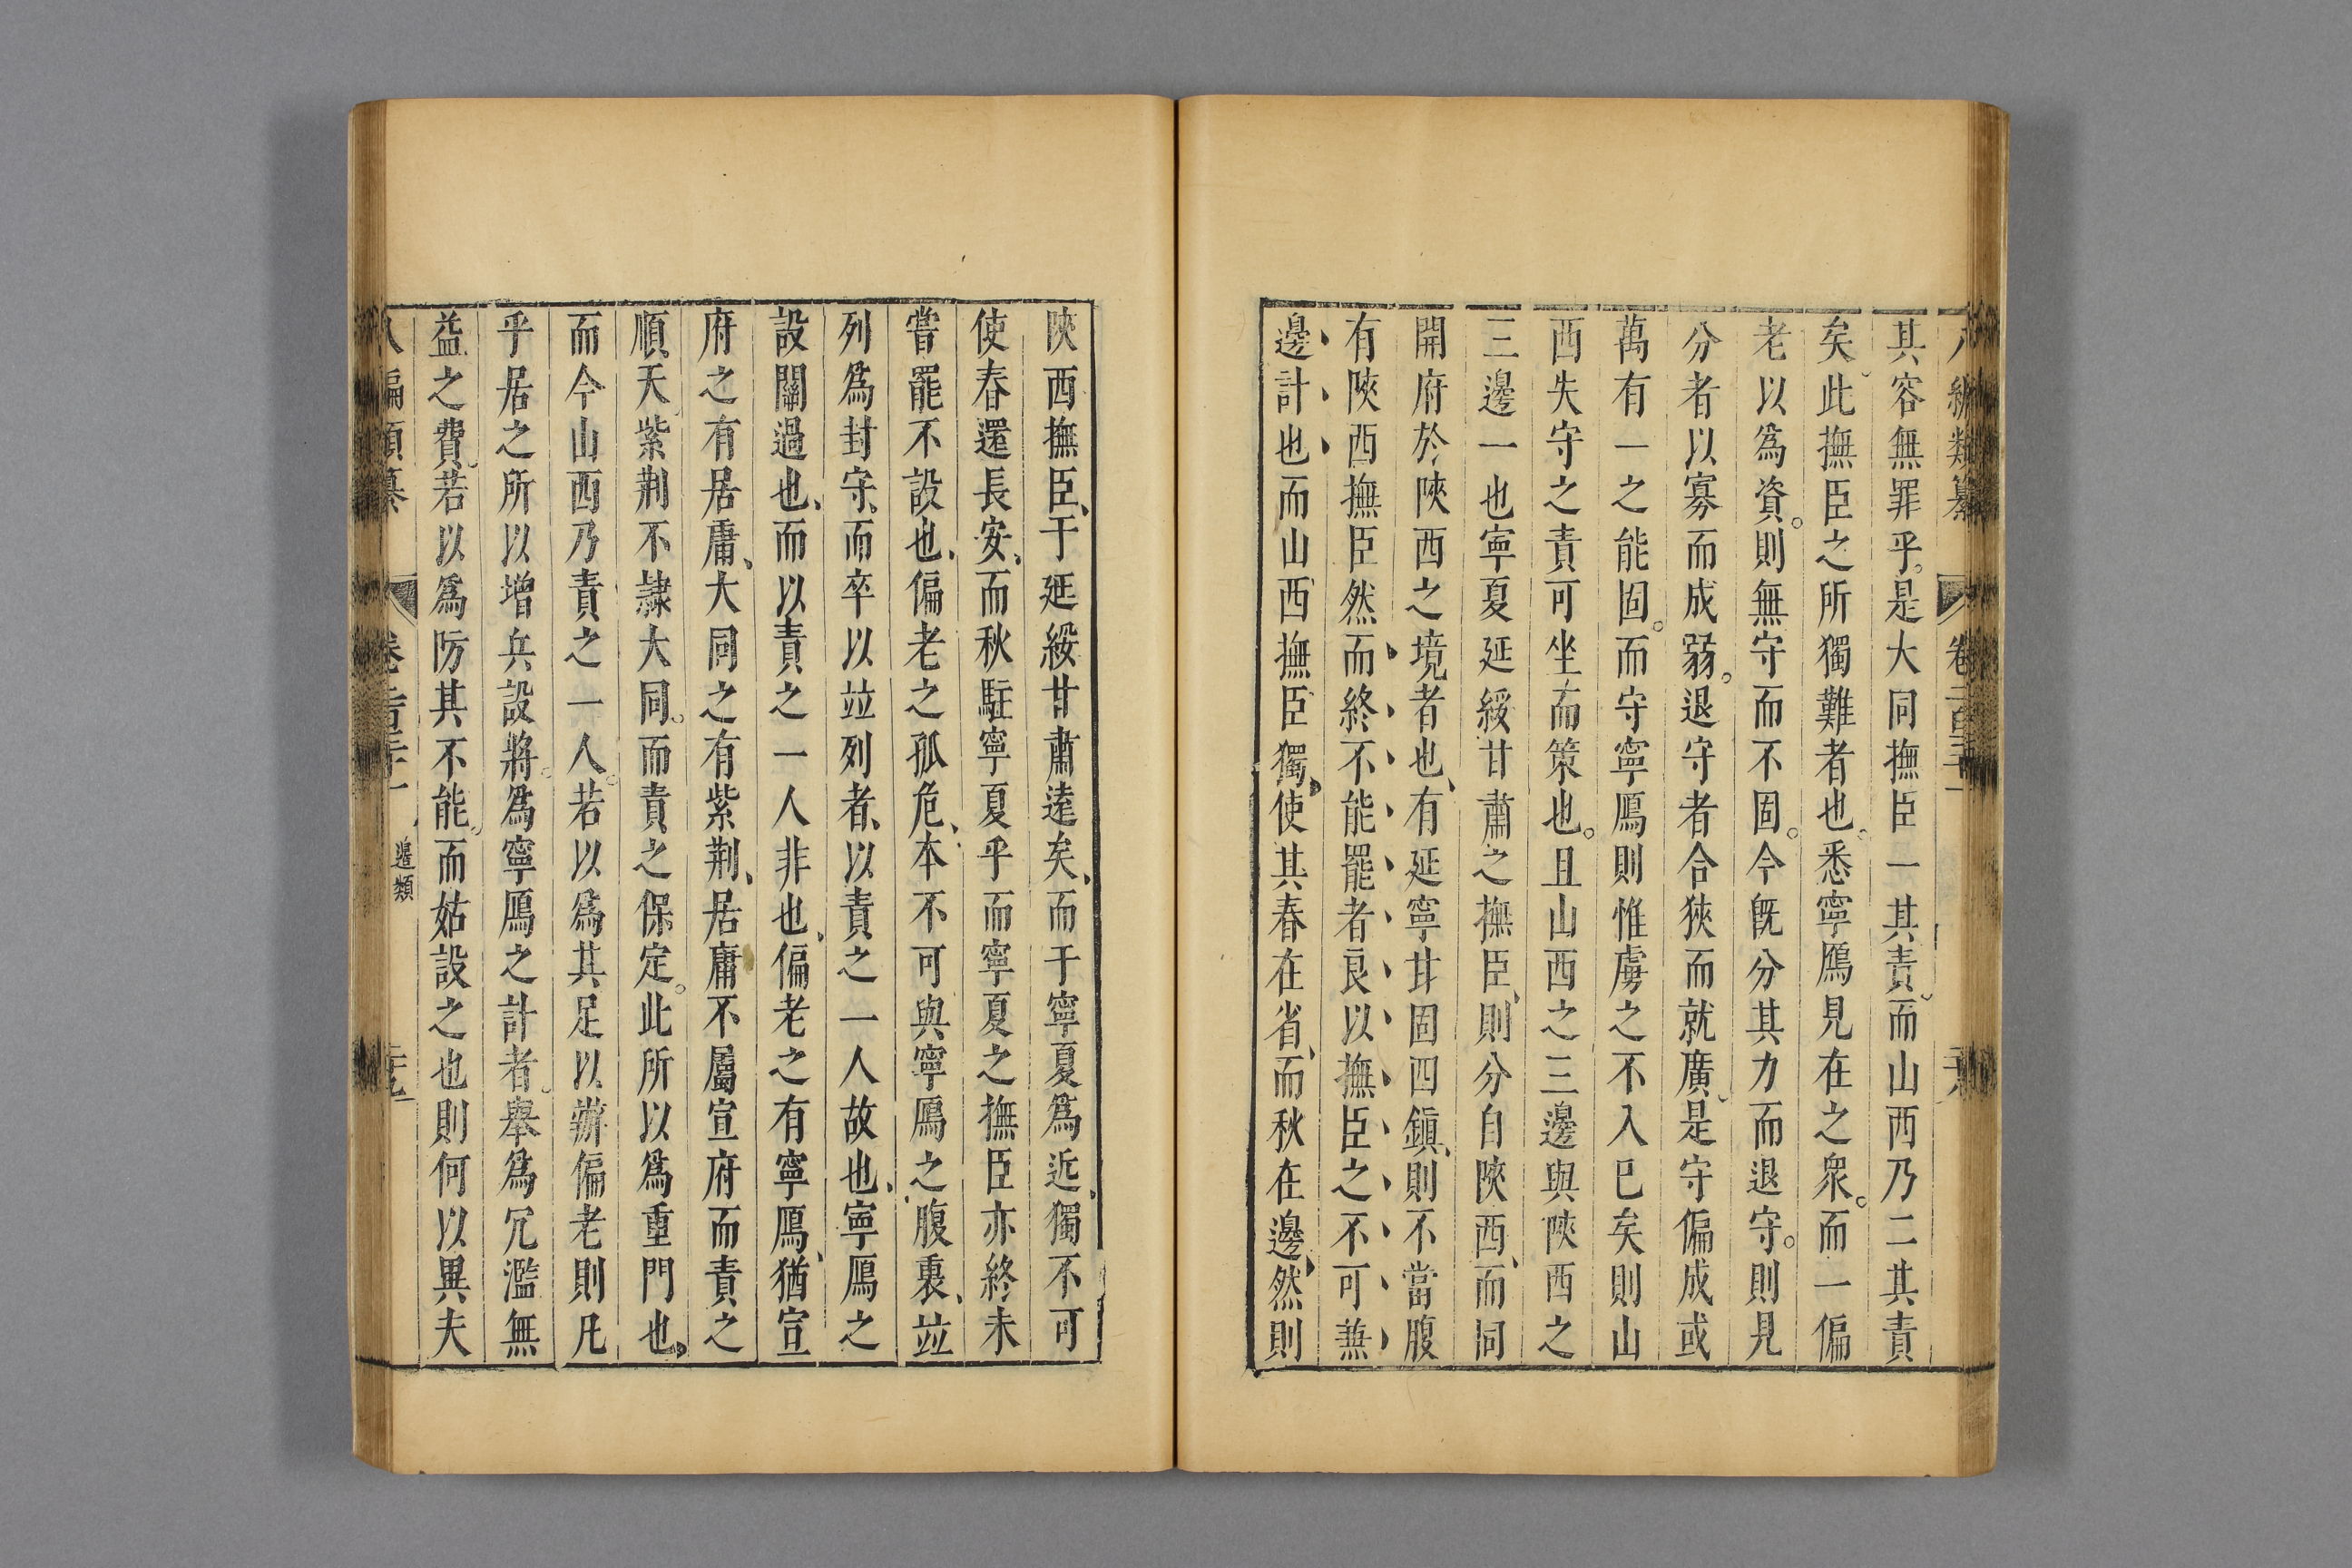 八編類纂 卷二百三十一
其容無罪乎是大同撫臣一其責而山西乃二其責
矣此撫臣之所獨難者也悉寧鴈見在之衆而一偏
老以爲資則無守而不固今旣分其力而退守則見
分者以寡而成弱退守者合狹而就廣是守偏成或
萬有一之能固而守寧鴈則惟虜之不入巳矣則山
西失守之責可坐而策也且山西之三邊與陝西之
三邊一也寧夏延綏甘肅之撫臣則分自陝西而同
開府於陝西之境者也有延寧甘固四鎭則不當腹
有陝西撫臣然而終不能罷者良以撫臣之不可兼
邊計也而山西撫臣獨使其春在省而秋在邊然則
陝西撫臣于延綏甘肅遠矣而于寧夏爲近獨不可
使春還長安而秋駐寧夏乎而寧夏之撫臣亦終未
嘗罷不設也偏老之孤危本不可與寧鴈之腹裏竝
列爲封守而卒以竝列者以責之一人故也寧鴈之
設關過也而以責之一人非也偏老之有寧鴈猶宣
府之有居庸大同之有紫荆居庸不屬宣府而責之
順天紫荆不隷大同而責之保定此所以爲重門也
而今山西乃責之一人若以爲其足以辦偏老則凡
乎居之所以增兵設將爲寧鴈之計者舉爲冗濫無
益之費若以爲防其不能而姑設之也則何以異夫
八編類纂 卷 邊類